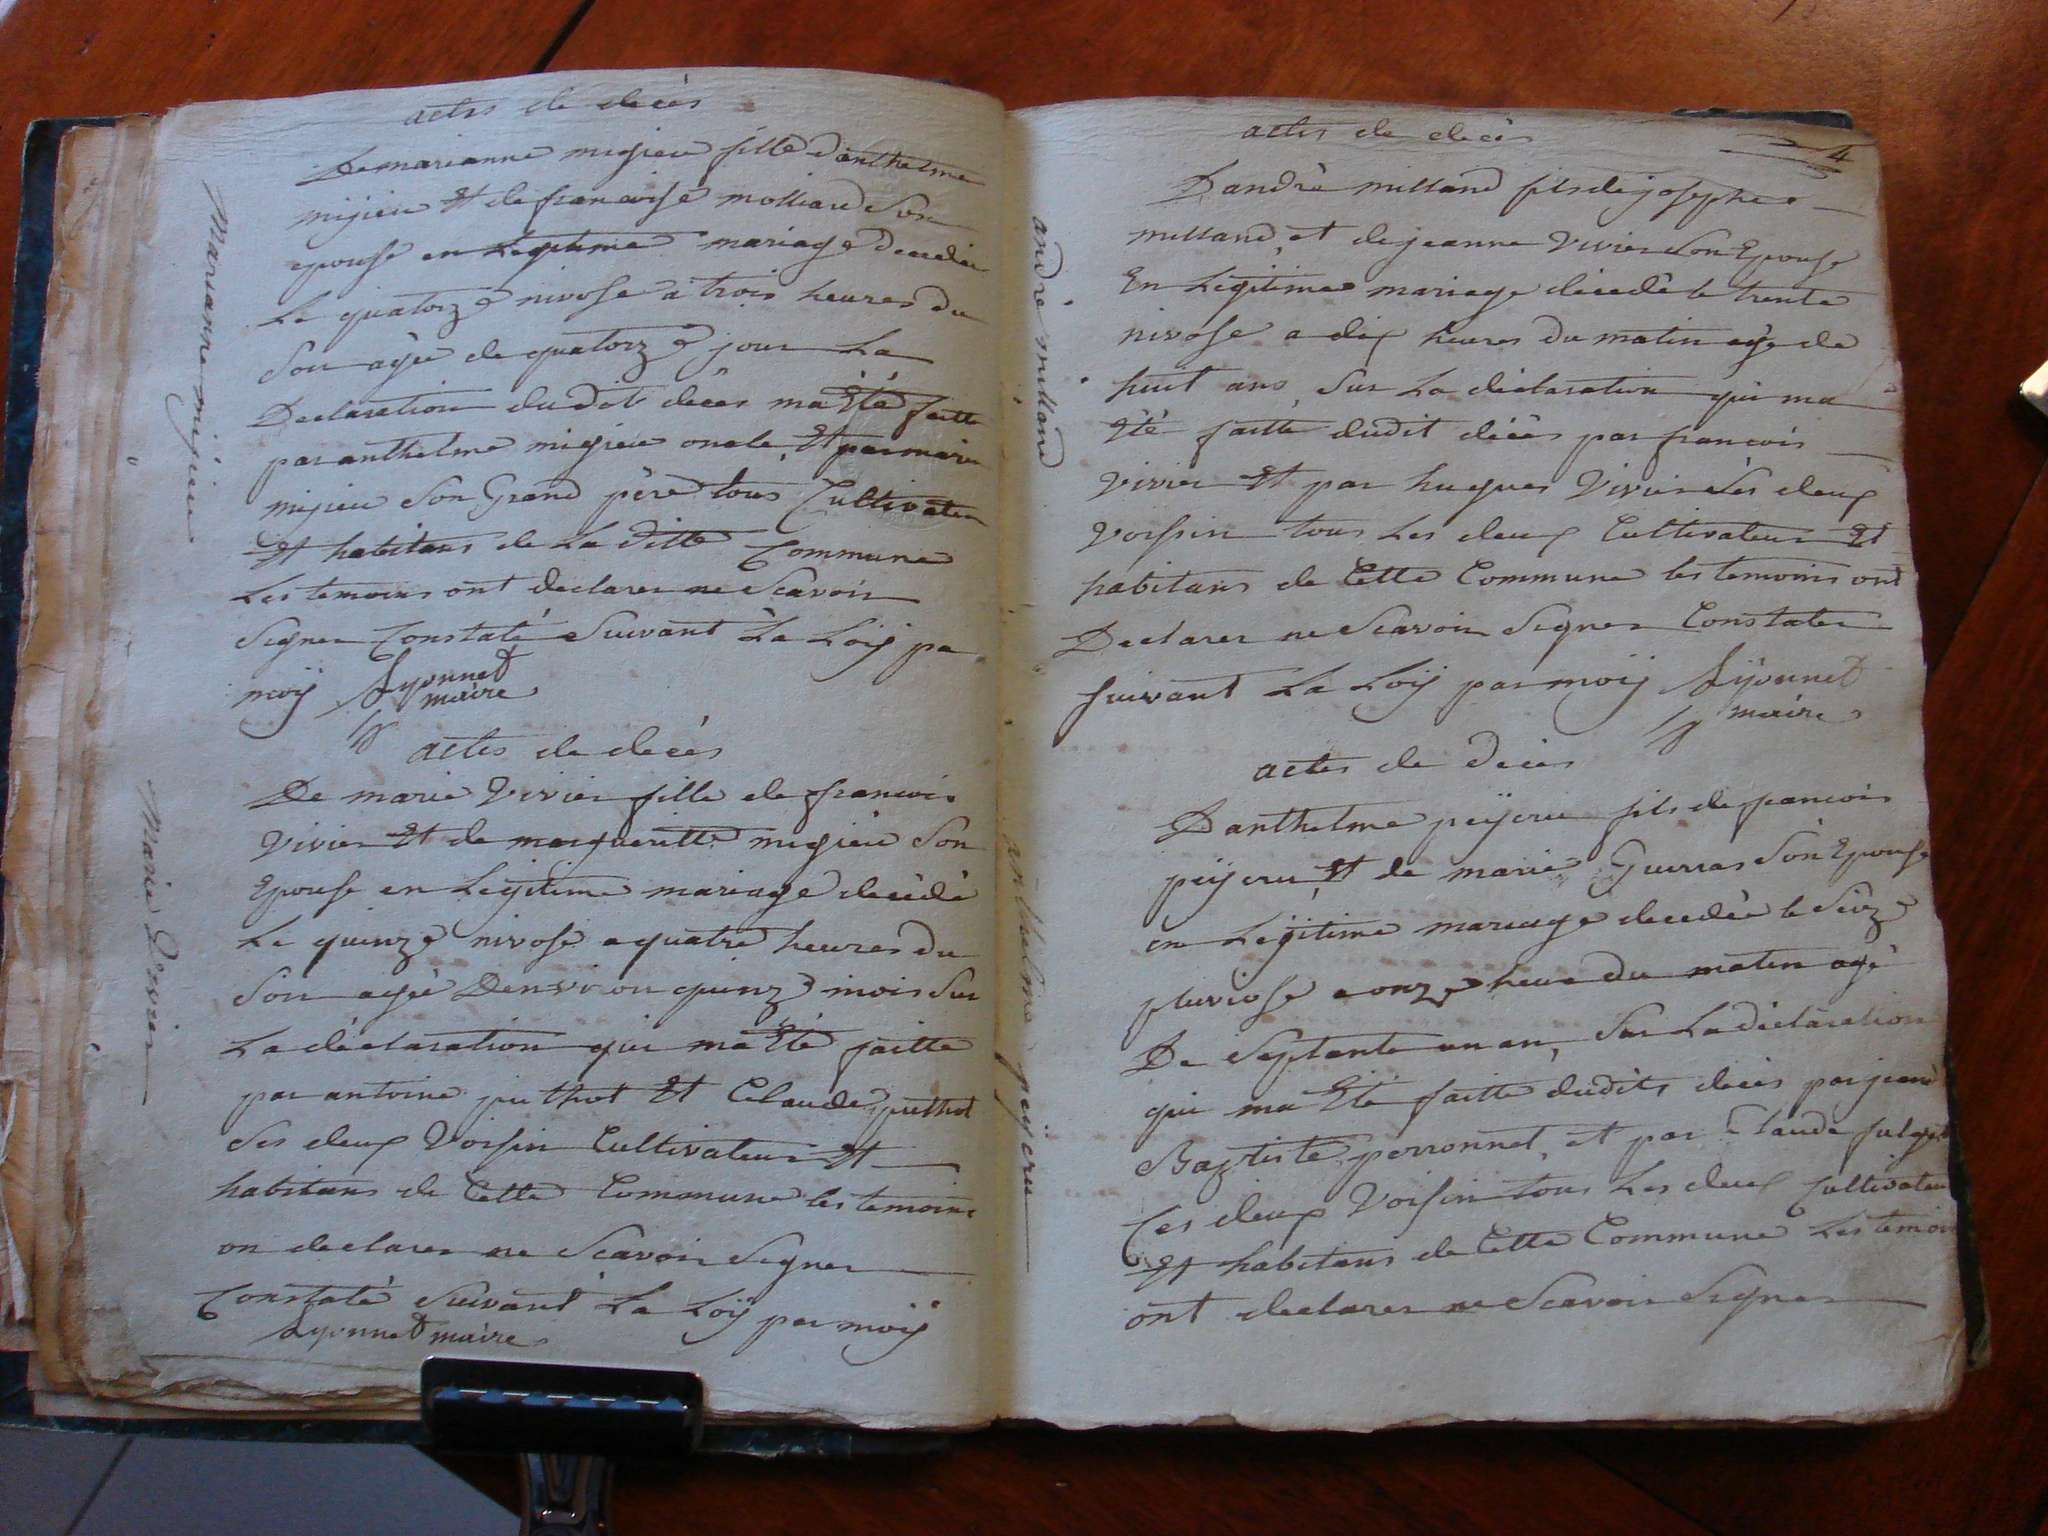 actes de decés
De marianne migieu fille danthelme
migieu Et de francoise molliard Son
epouse en Legitime mariage decedée
Le quatorze nivose a trois heures du
Soir agée de quatorze jour La
Declaration dudit decés ma Eté faitte
par anthelme migieu oncle, Et par
migieu Son Grand père tous Cultivateur
Et habitans de La ditte Commune
Les temoins ont declarer ne Scavoir
Signer Constaté Suivant La Loÿ pa
moÿ Lyonnet
maire
marianne migieu
actes de decés
De marie Vivier fille de francois
Vivier Et de margueritte migieu Son
Epouse en Legitime mariage decédé
Le quinze nivose a quatre heures du
Soir agée Denviron quinze mois Sur
La déclaration qui ma Eté faitte
par antoine puthot Et Claude puthot
Ses deux Voisin Cultivateur Et
habitans de Cette Commune les temoins
on declarer ne Scavoir Signer
Constaté Suivant La Loÿ par moÿ
Lyonnet maire
Marie Vivier
4
actes de decés
Dandré milland fils de josephe
milland, et de jeanne Vivier Son Epouse
En Légitime mariage décedé le trente
nivose a dix heures du matin agé de
huit ans, Sur La déclaration qui ma
Eté faitte dudit décés par francois
Vivier Et par hugues Vivier Ses deux
Voisin tous Les deux Cultivateur Et
habitans de Cette Commune les temoins ont
Declarer ne Scavoir Signer Constater
Suivant La Loÿ par moÿ Lyonnet
maire
andré milland
actes de Decés
Danthelme peÿcru fils de francois
peÿcru, Et de marie Guerras Son Epouse
en Legitime mariage decedée le Seize
pluviose a onze heure du matin agé
De Septante un an, Sur La déclaration
qui ma Eté faitte dudits decés par jean
Baptiste perronnet, et par Claude
Ces deux Voisin tous Les deux Cultivateur
Et habitans de Cette Commune Les temoin
ont declarer ne Scavoir Signer
anthelme peÿcru